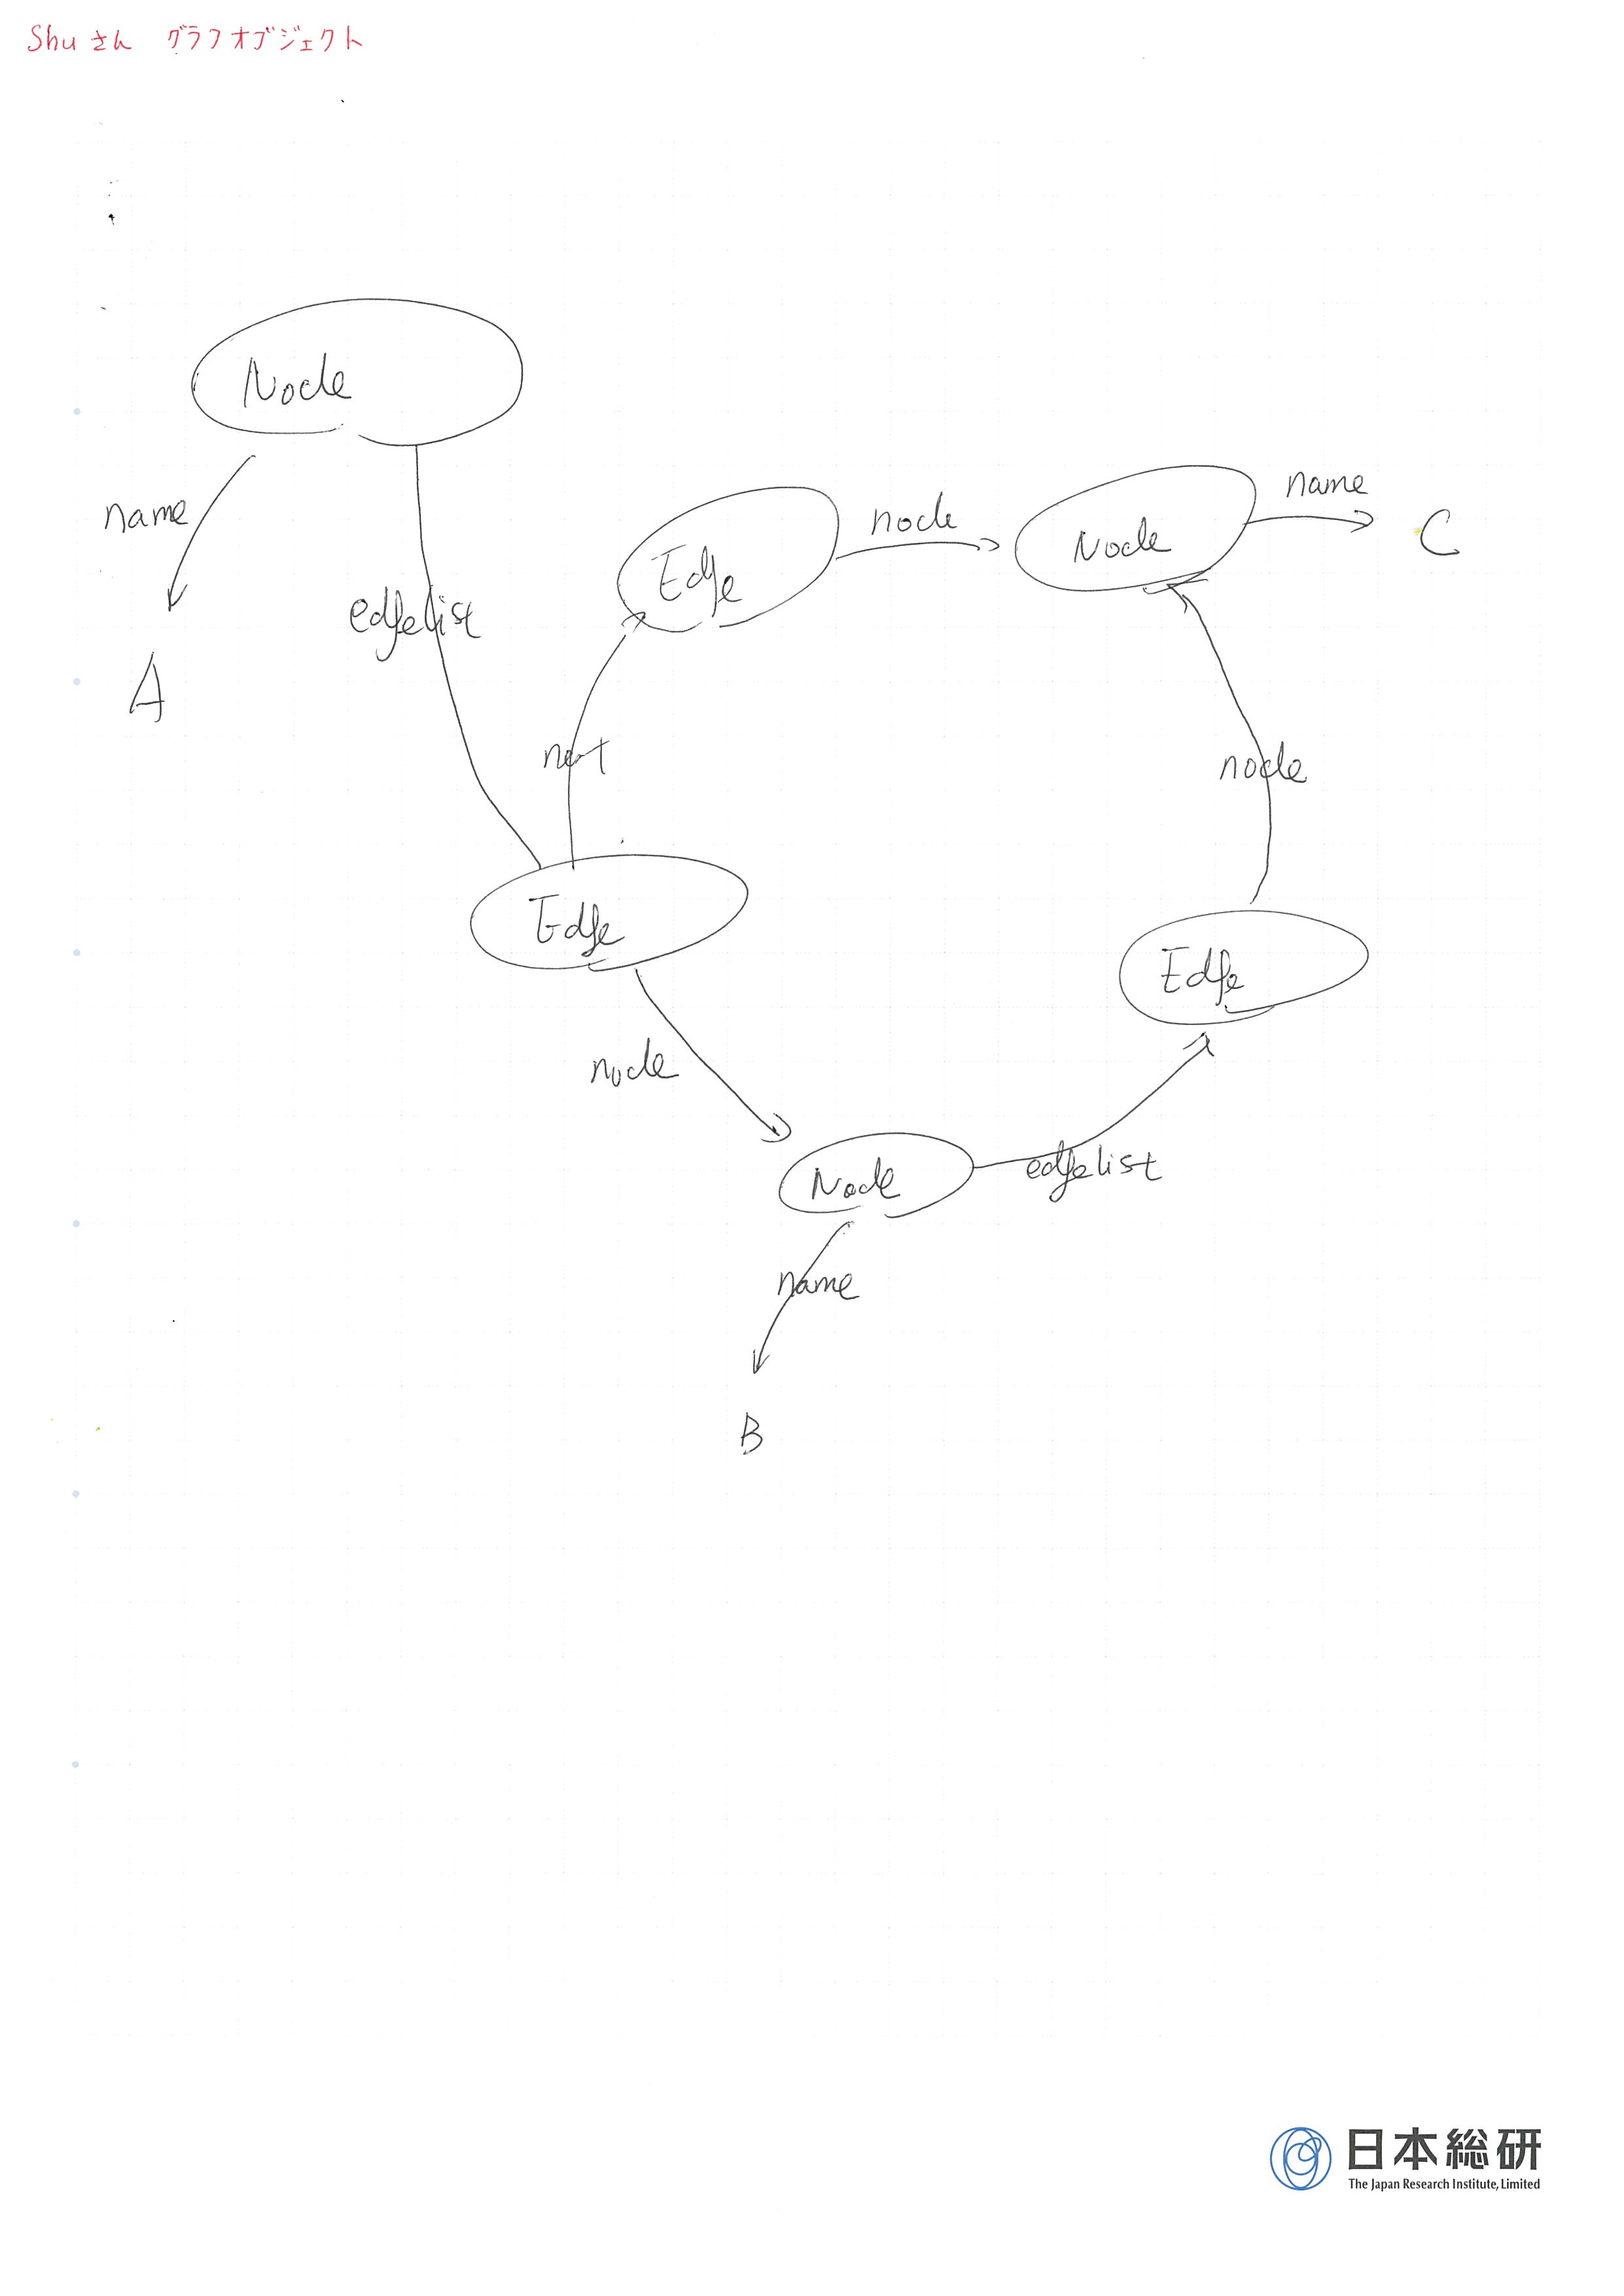 Shuさん グラフオブジェクト
Node
name
A
edgelist
Edge
node
Node
name
C
next
node
Edge
Edge
node
Node
edgelist
name
B
日本総研
The Japan Research Institute, Limited